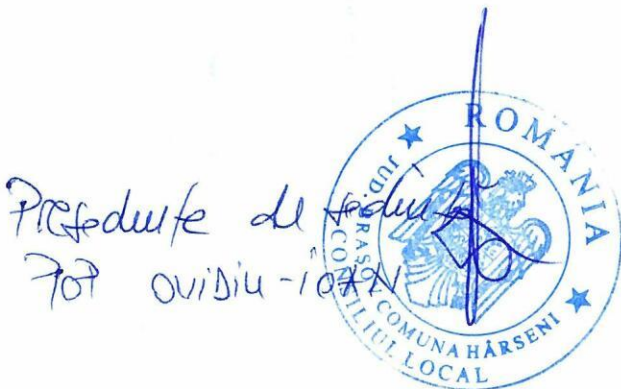 Președinte de ședință
POP OVIDIU-IOAN
ROMÂNIA
JUD. BRAȘOV
COMUNA HÂRSENI
CONSILIUL LOCAL